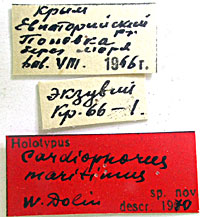 Крым
Евпаторийский
Поповка р-н.
берег моря
lab. VIII. 1966г.
экзувий
Кр. 66-1.
Holotypus
Cardiophorus
maritimus
sp. nov
W. Dolin descr. 1970